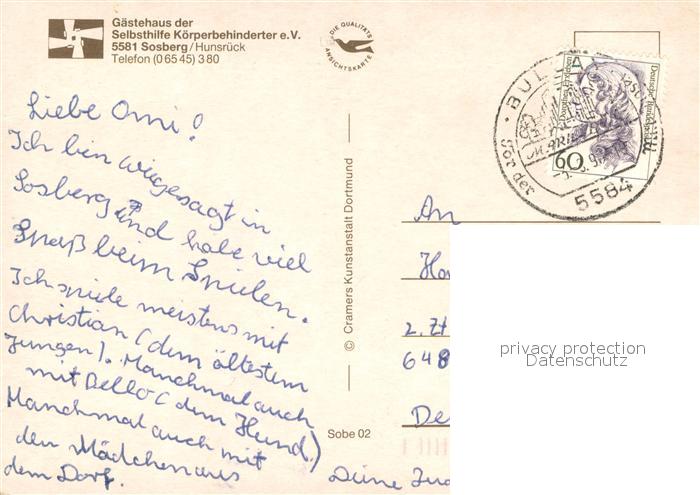 Gästehaus der
Selbsthilfe Körperbehinderter e.V.
5581 Sosberg/Hunsrück
Telefon (0 65 45) 3 80
DIE QUALITÄTS
ANSICHTSKARTE
Liebe Omi!
Ich bin wiegesagt in
Sosberg und habe viel
Spaß beim Spielen.
Ich spiele meistens mit
Christian (dem ältestem
Jungen). Manchmal auch
mit Bello (dem Hund.)
Manchmal auch mit
den Mädchen aus
dem Dorf.
© Cramers Kunstanstalt Dortmund
Sobe 02
Deutsche Bundespost
60
BUL
MARIE
Vor der
5584
An
2. Zt
648
De
privacy protection
Datenschutz
Deine